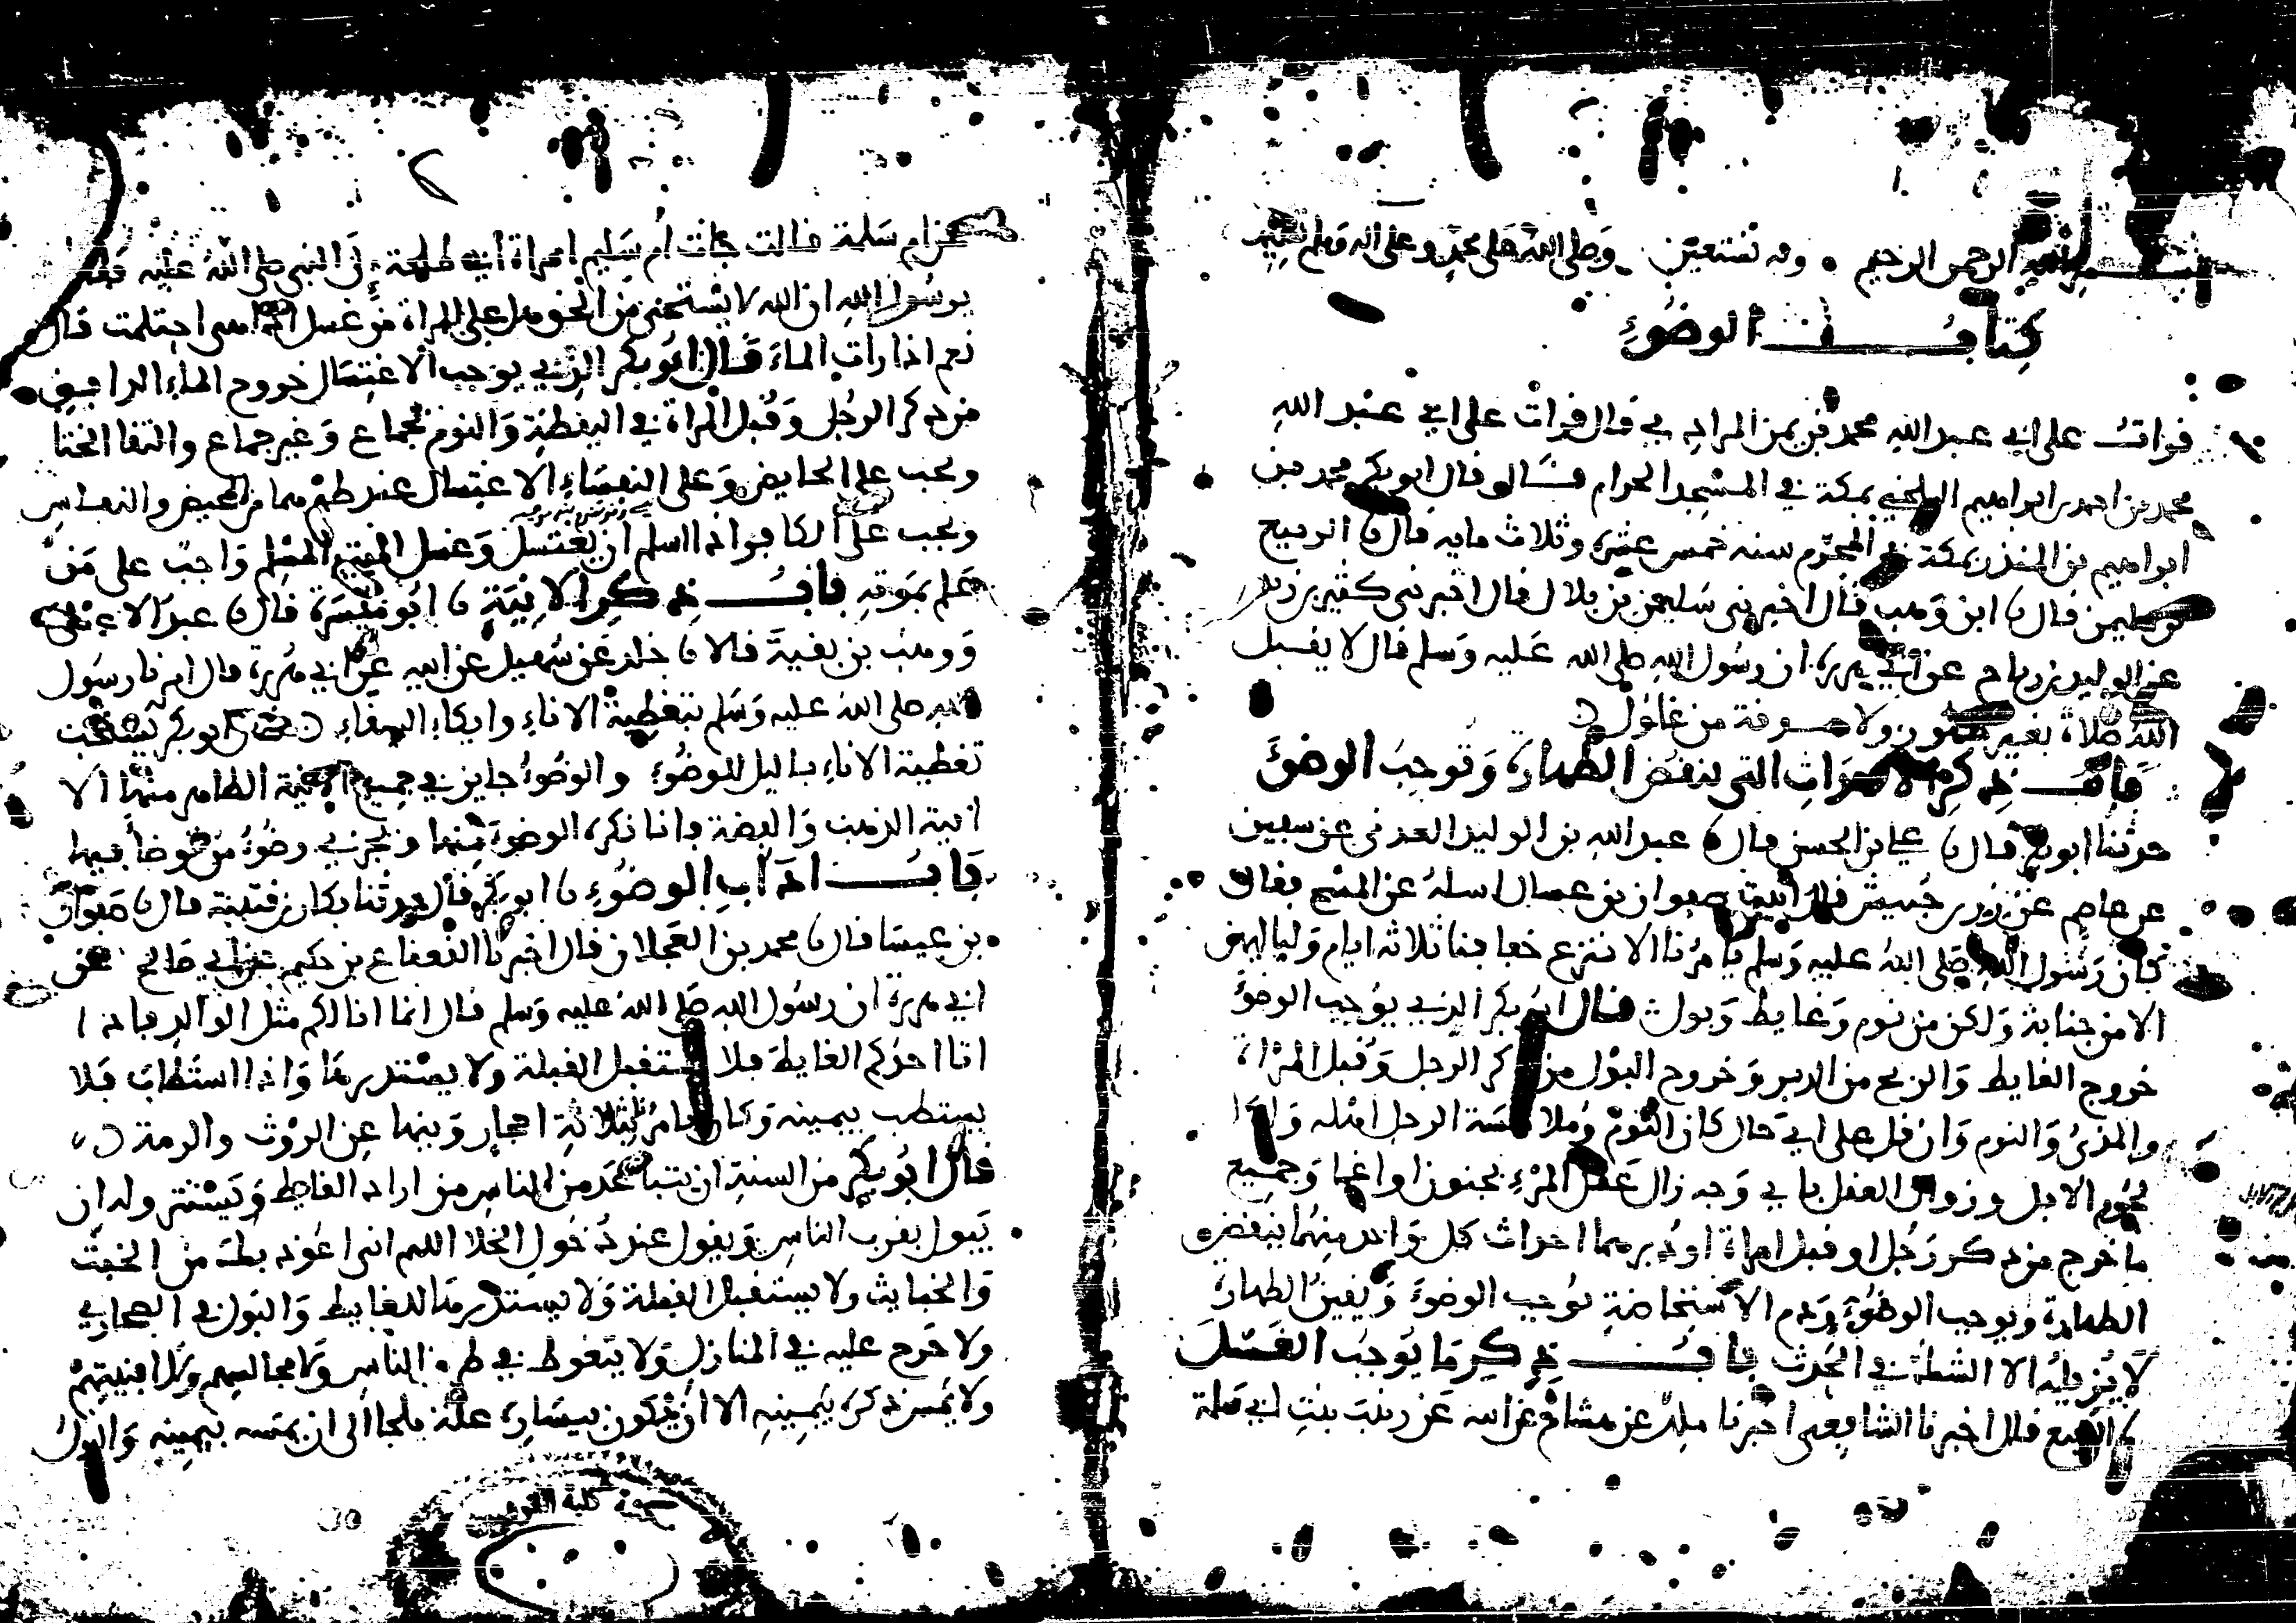 بسم الله الرحمن الرحيم وبه نستعين وصلى الله على محمد وعلى اله وسلم
كتاب الوضوء
قرات على ابي عبد الله محمد بن يمن المرادي قال قرات على ابي عبد الله
محمد بن احمد بن ابراهيم البلخي بمكة في المسجد الحرام قال قال ابو بكر محمد بن
ابراهيم بن المنذر بمكة في المحرم سنه خمس عشرة وثلاث مايه قال نا الربيع
بن سليمن قال نا ابن وهب قال اخبرني سليمن بن بلال قال اخبرني كثير بن زيد
عن الوليد بن رباح عن ابي هريرة ان رسول الله صلى الله عليه وسلم قال لا يقبل
الله صلاة بغير طهور ولا صدقة من غلول
باب ذكر الاحداث التي تنقض الطهارة وتوجب الوضوء
حدثنا ابو بكر قال نا علي بن الحسن قال نا عبد الله بن الوليد العدني عن سفين
عن عاصم عن زر بن حبيش قال اتيت صفوان بن عسال اسله عن المسح فقال
كان رسول الله صلى الله عليه وسلم يامرنا الا ننزع خفافنا ثلاثة ايام ولياليهن
الا من جنابة ولكن من نوم وغايط وبول قال ابو بكر الذي يوجب الوضوء
خروج الغايط والريح من الدبر وخروج البول من ذكر الرجل وقبل المراة
والمذي والنوم وان قل على اي حال كان النوم وملامسة الرجل اهله
لحوم الابل وزوال العقل باي وجه زال عقل المرء بجنون او اغما وجميع
ما خرج من ذكر رجل او قبل امراة او دبرهما احداث كل واحد منهما ينقض
الطهارة ويوجب الوضوء ودم الاستحاضة يوجب الوضوء ويقين الطهارة
لا يزيله الا الشك في الحدث باب ذكر ما يوجب الغسل
نا الربيع قال اخبرنا الشافعي اخبرنا ملك عن هشام عن ابيه عن زينب بنت ابي سلمة
عن ام سلمة قالت جات ام سليم امراة ابي طلحة الى النبي صلى الله عليه فقالت
يرسول الله ان الله لا يستحي من الحق هل على المراة من غسل اذا هي احتلمت قال
نعم اذا رات الماء قال ابو بكر الذي يوجب الاغتسال خروج الماء الدافق
من ذكر الرجل وقبل المراة في اليقظة والنوم لجماع وغير جماع والتقا الختا
ويجب على الحايض وعلى النفساء الاغتسال عند طهرهما من المحيض والنفاس
ويجب على الكافر اذا اسلم ان يغتسل وغسل الميت المسلم واجب على من
علم بموته باب ذكر الانية نا ابو ميسرة قال نا عبد الاعلى
ووهب بن بقية قالا نا خلد عن سهيل عن ابيه عن ابي هريرة قال امرنا رسول
الله صلى الله عليه وسلم بتغطية الاناء وايكاء السقاء قال ابو بكر يستحب
تغطية الاناء بالليل للوضوء والوضوء جايز في جميع الانية الطاهر منها الا
انية الذهب والفضة فانا نكره الوضوء منها ونجزي وضوء من توضا فيها
باب اداب الوضوء نا ابو بكر قال حدثنا بكار بن قتيبة قال نا صفوان
بن عيسا قال نا محمد بن العجلان قال اخبرنا القعقاع بن حكيم عن ابي صالح عن
ابي هريرة ان رسول الله صلى الله عليه وسلم قال انما انا لكم مثل الوالد فاذا
اتا احدكم الغايط فلا يستقبل القبلة ولا يستدبرها واذا استطاب فلا
يستطب بيمينه وكان يامر بثلاثة احجار وينها عن الروث والرمة
قال ابو بكر من السنة ان يتباعد من الناس من اراد الغايط ويستتر وله ان
يبول بقرب الناس ويقول عند دخول الخلا اللهم اني اعوذ بك من الخبث
والخبايث ولا يستقبل القبلة ولا يستدبرها لغايط والبول في الصحاري
ولا حرج عليه في المنازل ولا يتغوط في طرق الناس ولا مجالسهم ولا افنيتهم
ولا يمس ذكره بيمينه الا ان يكون بيساره علة يلجا الى ان يمسه بيمينه والبول